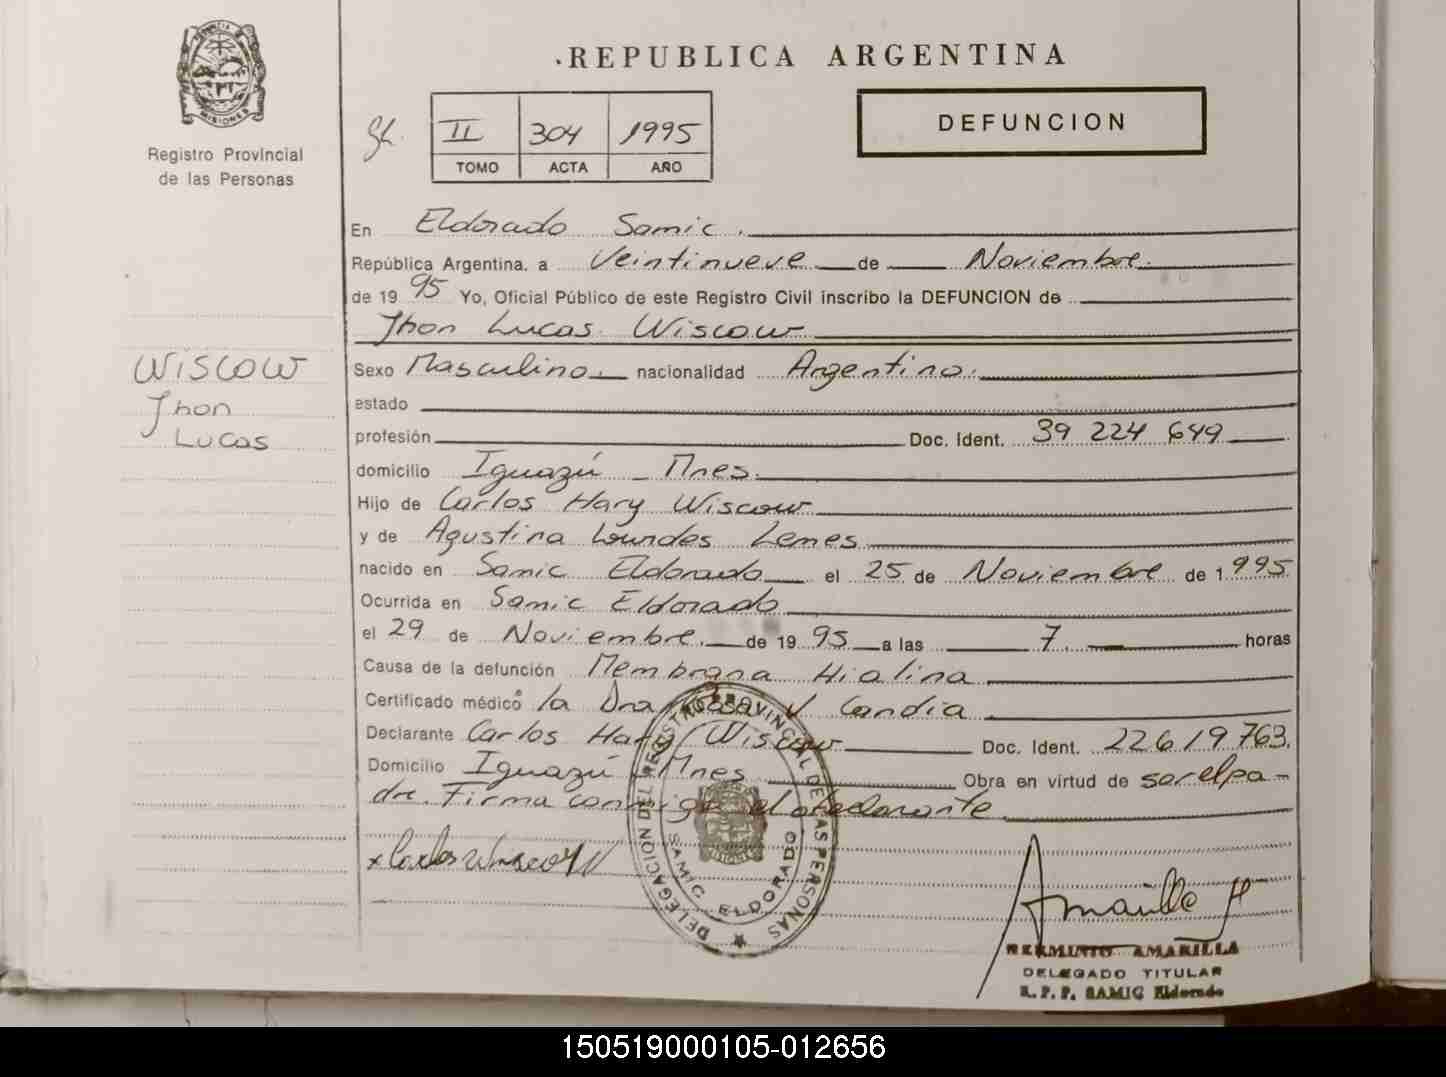 REPUBLICA ARGENTINA
MISIONES
Registro Provincial
de las Personas
II 304 1995
TOMO ACTA AÑO
DEFUNCION
En Eldorado Samic.
República Argentina, a Veintinueve de Noviembre.
de 1995 Yo, Oficial Público de este Registro Civil inscribo la DEFUNCION de
Jhon Lucas Wiscow
WISCOW
Jhon
Lucas
Sexo Masculino. nacionalidad Argentino.
estado
profesión Doc. Ident. 39 224 649
domicilio Iguazú - Mnes.
Hijo de Carlos Hary Wiscow
y de Agustina Lourdes Lemes
nacido en Samic Eldorado el 25 de Noviembre de 1.995
Ocurrida en Samic Eldorado
el 29 de Noviembre. de 1995 a las 7. horas
Causa de la defunción Membrana Hialina
Certificado médico la Dra Rosa V Candia
Declarante Carlos Hary Wiscow Doc. Ident. 22619763.
Domicilio Iguazú - Mnes Obra en virtud de ser el pa-
dre. Firma conmigo el declarante
x Carlos Wiscow
DELEGACION DEL REGISTRO PROVINCIAL DE LAS PERSONAS
SAMIC ELDORADO
HERMINIO AMARILLA
DELEGADO TITULAR
R.P.P. SAMIC Eldorado
150519000105-012656